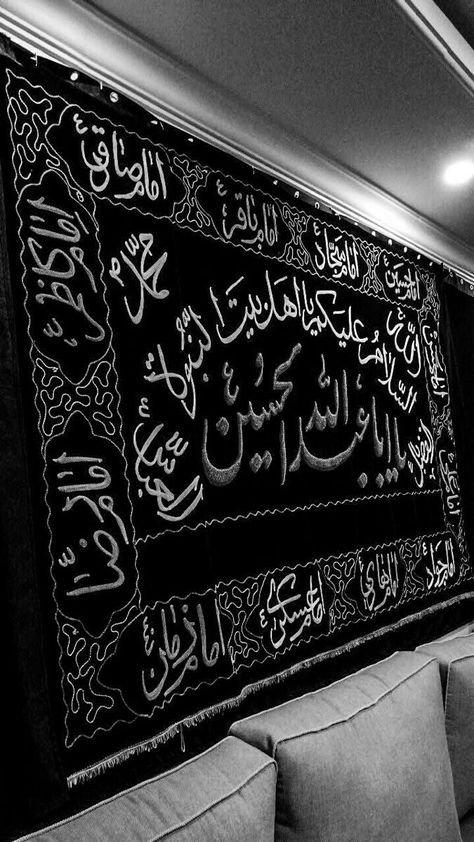 امام حسین
امام سجاد
امام باقر
امام صادق
الله
محمد
السلام علیکم یا اهل بیت النبوة
یا اباعبدالله الحسین
ابوالفضل
العباس
امام علی
امام کاظم
امام رضا
امام جواد
امام هادی
امام عسکری
امام زمان